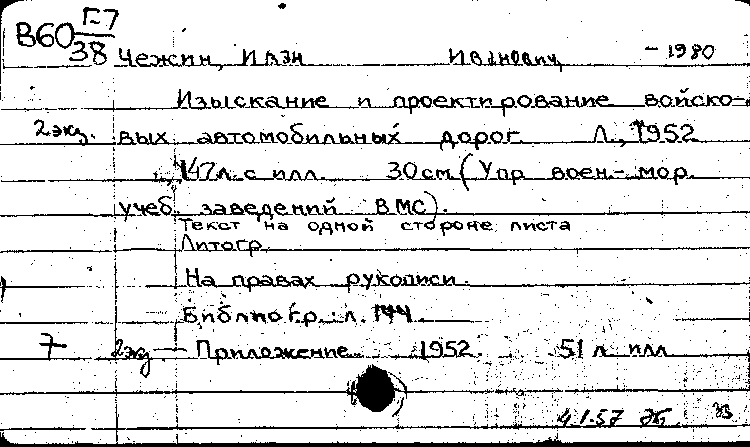 В60 Г-7
38
Чежин, Иван Иванович – 1980
Изыскание и проектирование войско-
2 экз. вых автомобильных дорог Л., 1952
147 л. с илл. 30 см (Упр воен-мор.
учеб. заведений ВМС).
Текст на одной стороне листа
Литогр.
На правах рукописи.
Библиогр.: л. 144.
7 2 экз. – Приложение 1952. 51 л илл
4.1.57